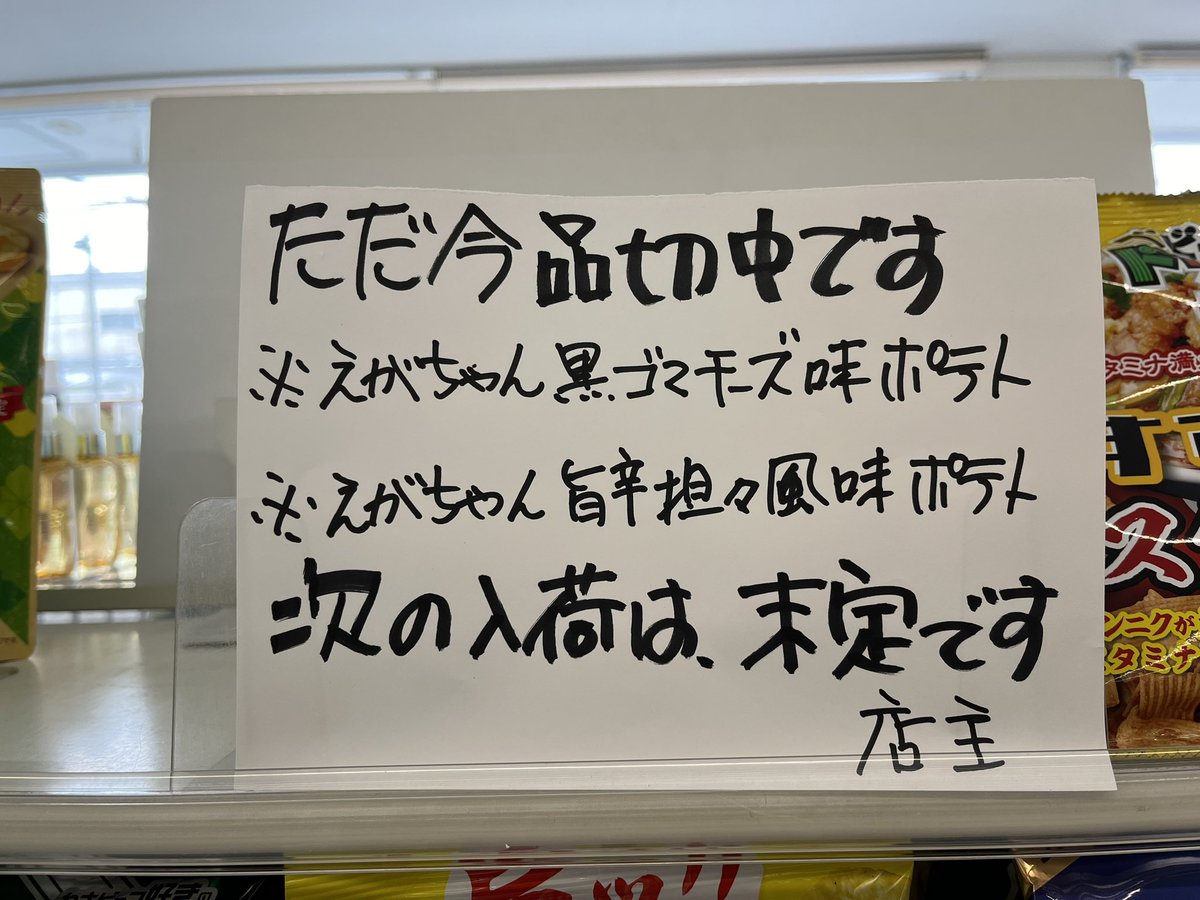 ただ今品切中です
※えがちゃん黒ゴマチーズ味ポテト
※えがちゃん旨辛担々風味ポテト
次の入荷は、末定です
店主
タミナ満
ンニクが
スタミナ